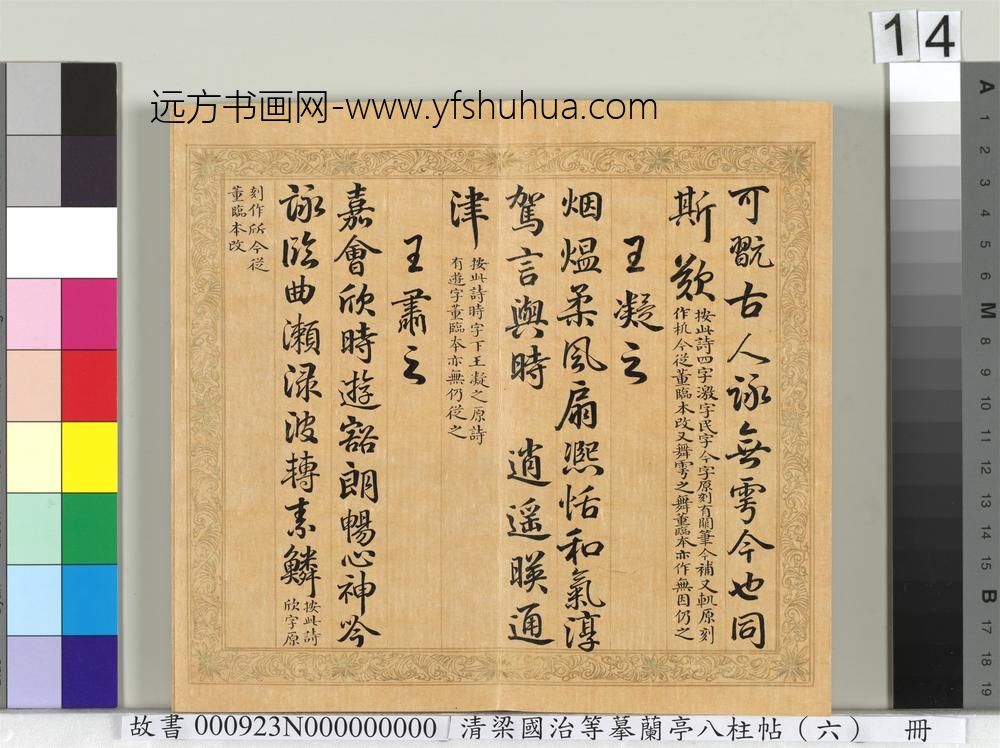 14
远方书画网-www.yfshuhua.com
可翫古人詠無雩今也同
斯歎
按此詩四字激字民字今字原刻有闕筆今補又軏原刻
作扤今從董臨本改又舞雩之舞董臨本亦作無因仍之
王凝之
烟熅柔風扇凞恬和氣淳
駕言興時 逍遥暎通
津
按此詩時字下王凝之原詩
有遊字董臨本亦無仍從之
王肅之
嘉會欣時遊豁朗暢心神吟
詠臨曲瀨渌波轉素鱗
按此詩
欣字原
刻作㳄今從
董臨本改
A 1 2 3 4 5 6 M 8 9 10 11 12 13 14 15 B 17 18 19
故書 000923N000000000 清梁國治等摹蘭亭八柱帖（六） 冊